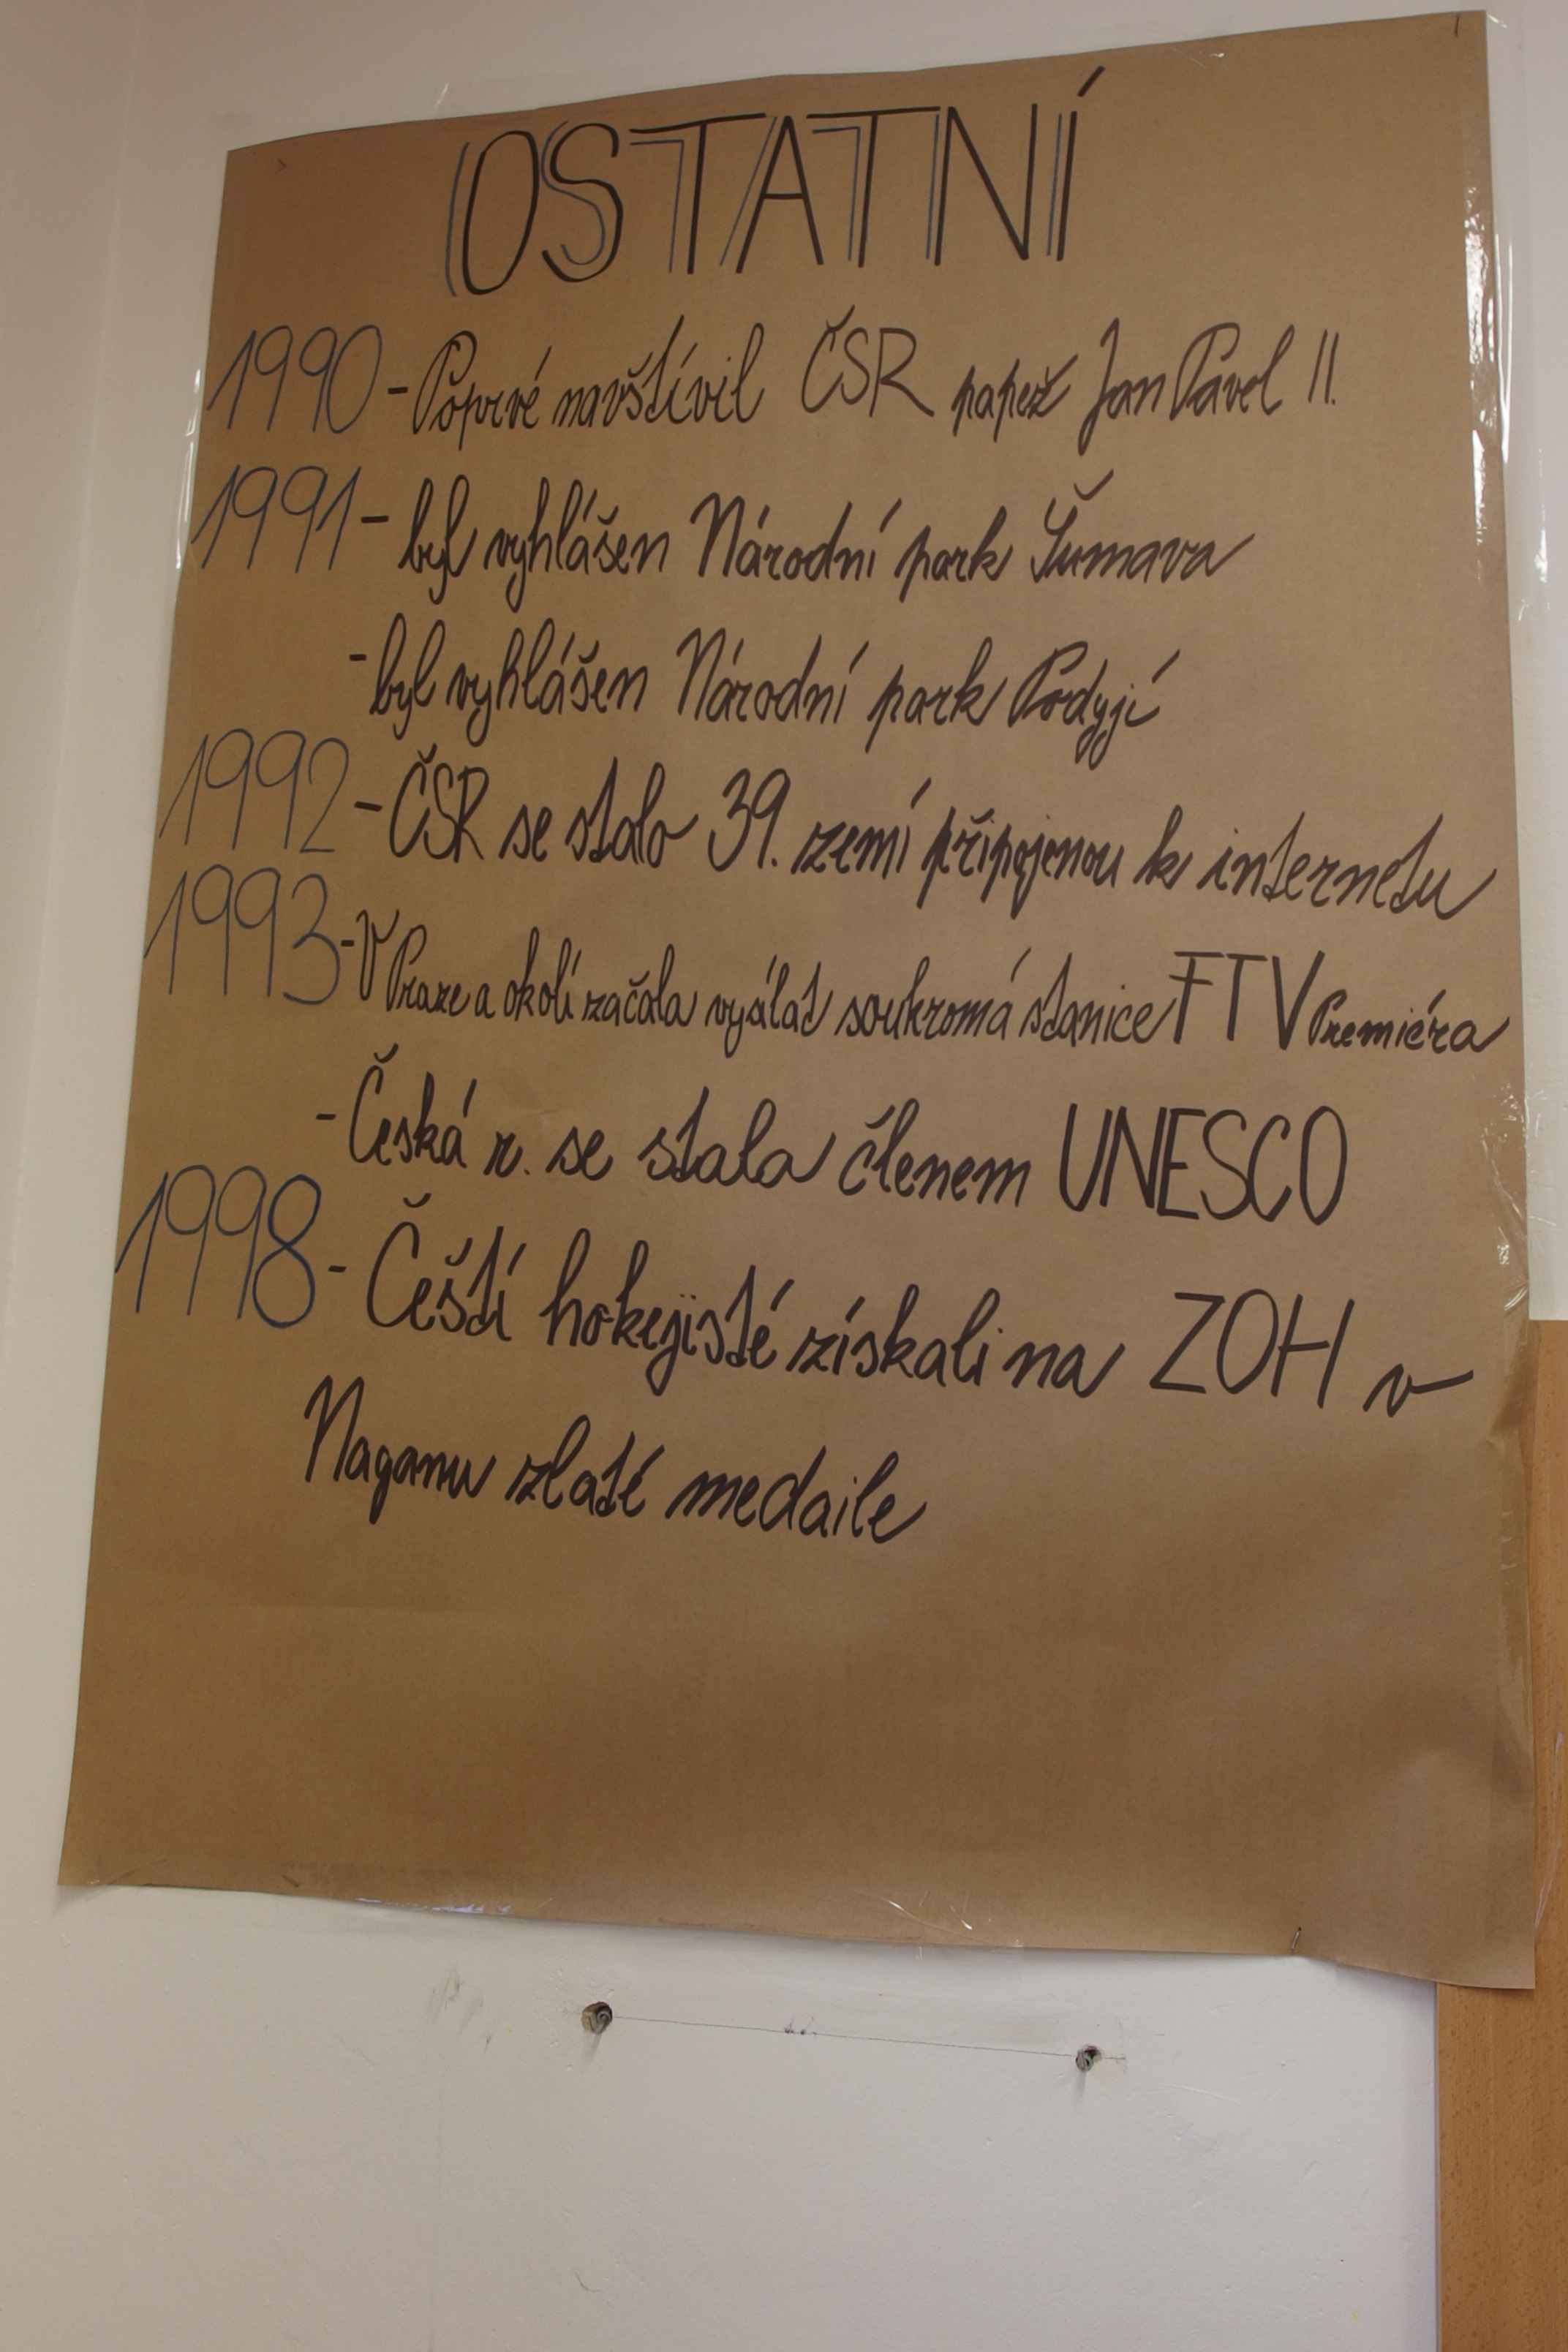 OSTATNÍ
1990 - Poprvé navštívil ČSR papež Jan Pavel II.
1991 - byl vyhlášen Národní park Šumava
- byl vyhlášen Národní park Podyjí
1992 - ČSR se stalo 39. zemí připojenou k internetu
1993 - V Praze a okolí začala vysílat soukromá stanice FTV Premiéra
- Česká r. se stala členem UNESCO
1998 - Čeští hokejisté získali na ZOH v
Naganu zlaté medaile